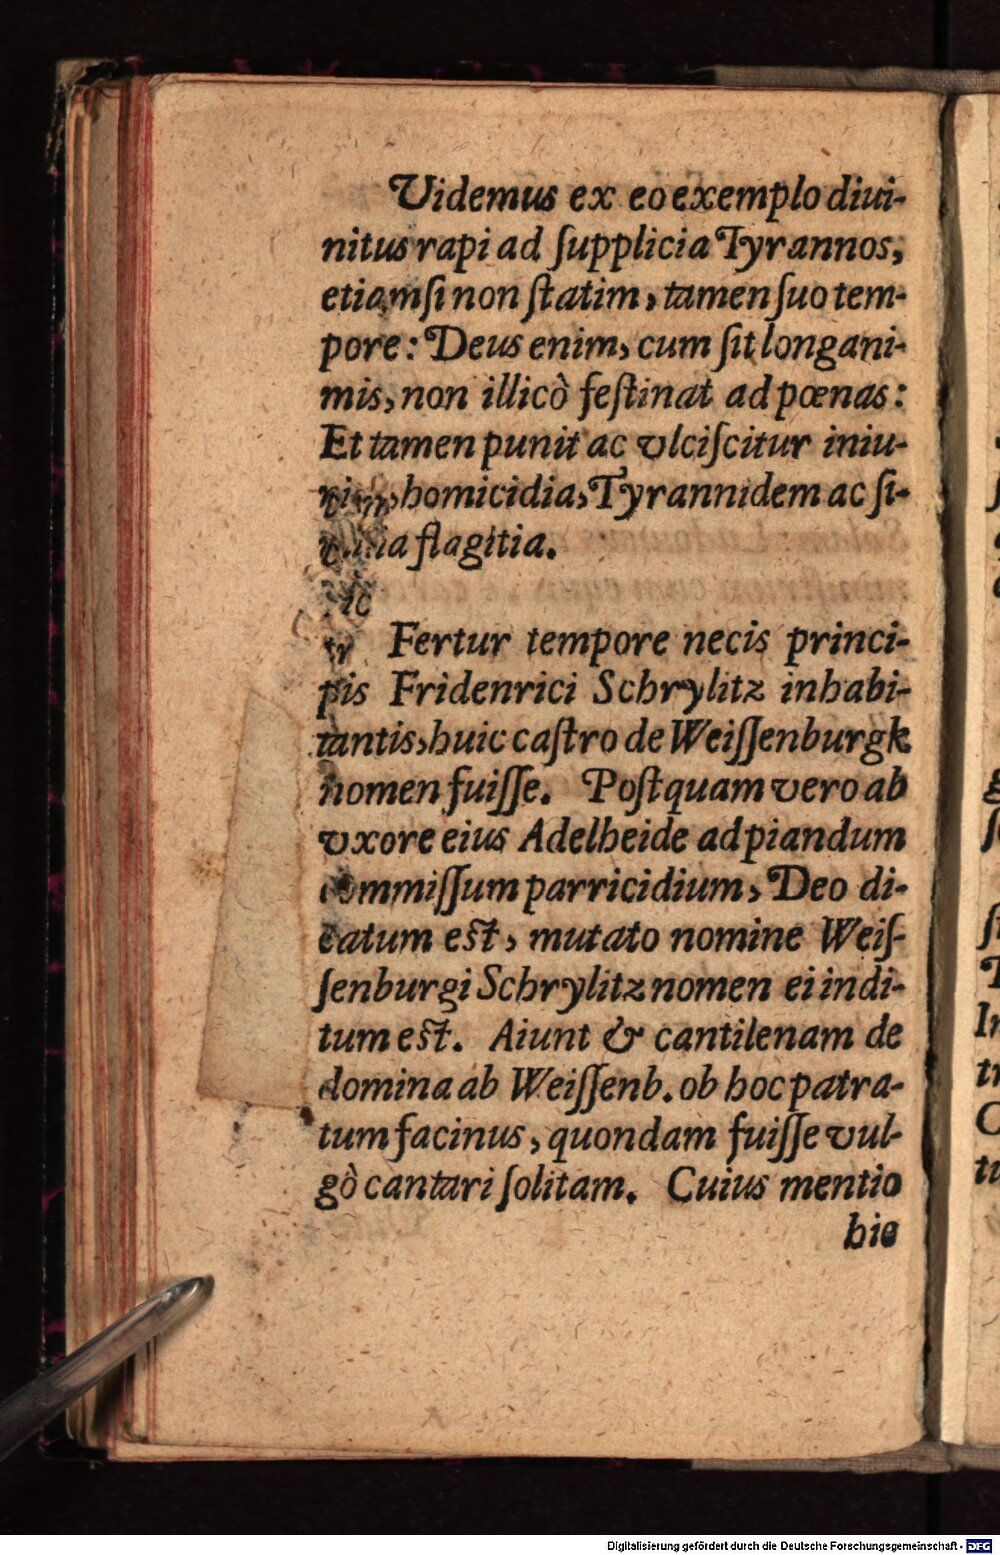 Videmus ex eo exemplo diui-
nitus rapi ad ſupplicia Tyrannos,
etiamſi non ſtatim, tamen ſuo tem-
pore: Deus enim, cum ſit longani-
mis, non illicò feſtinat ad pœnas:
Et tamen punit ac vlciſcitur iniu-
homicidia, Tyrannidem ac ſi-
flagitia.
Fertur tempore necis princi-
pis Fridenrici Schrylitz inhabi-
tantis, huic caſtro de Weiſſenburgk
nomen fuiſſe. Poſtquam vero ab
vxore eius Adelheide ad piandum
commiſſum parricidium, Deo di-
catum eſt, mutato nomine Weiſ-
ſenburgi Schrylitz nomen ei indi-
tum eſt. Aiunt & cantilenam de
domina ab Weiſſenb. ob hoc patra-
tum facinus, quondam fuiſſe vul-
gò cantari ſolitam. Cuius mentio
hic
Digitalisierung gefördert durch die Deutsche Forschungsgemeinschaft - DFG